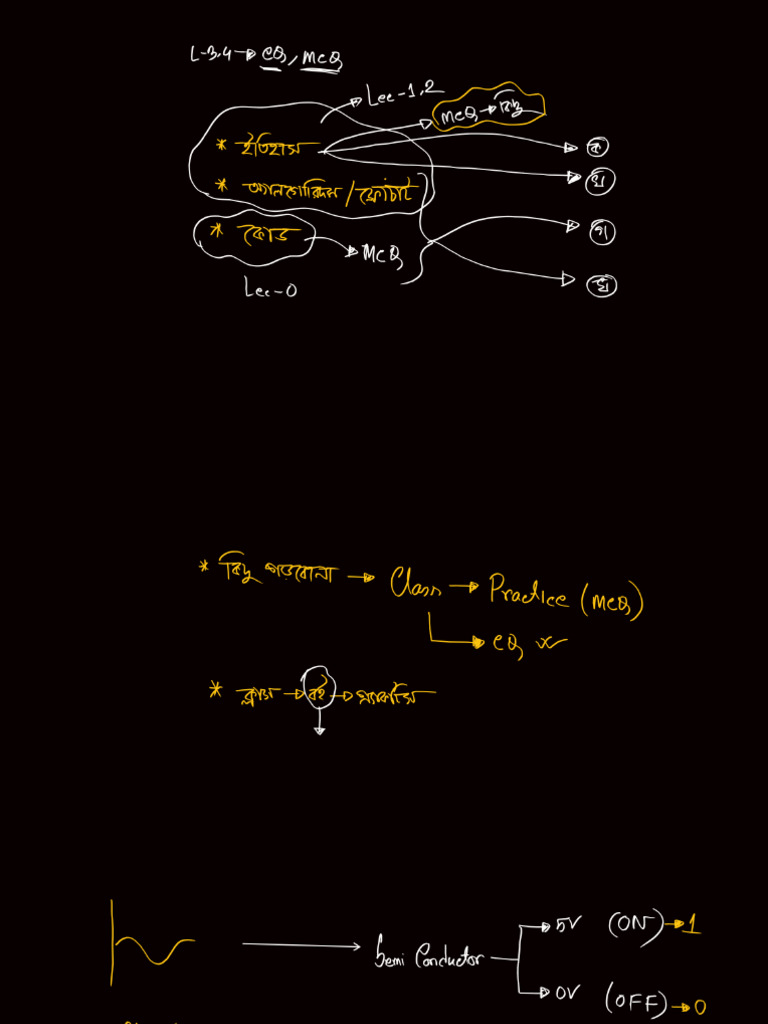 L-3,4 → CQ, MCQ
Lec-1,2
MCQ → কিছু
* ইতিহাস
ক
খ
* অ্যালগোরিদম / ফ্লোচার্ট
* কোড → MCQ
গ
ঘ
Lec-0
* কিছু পড়বোনা → Class → Practice (MCQ)
CQ
* ক্লাস → বই → প্র্যাকটিস
5V (ON) → 1
Semi Conductor
0V (OFF) → 0